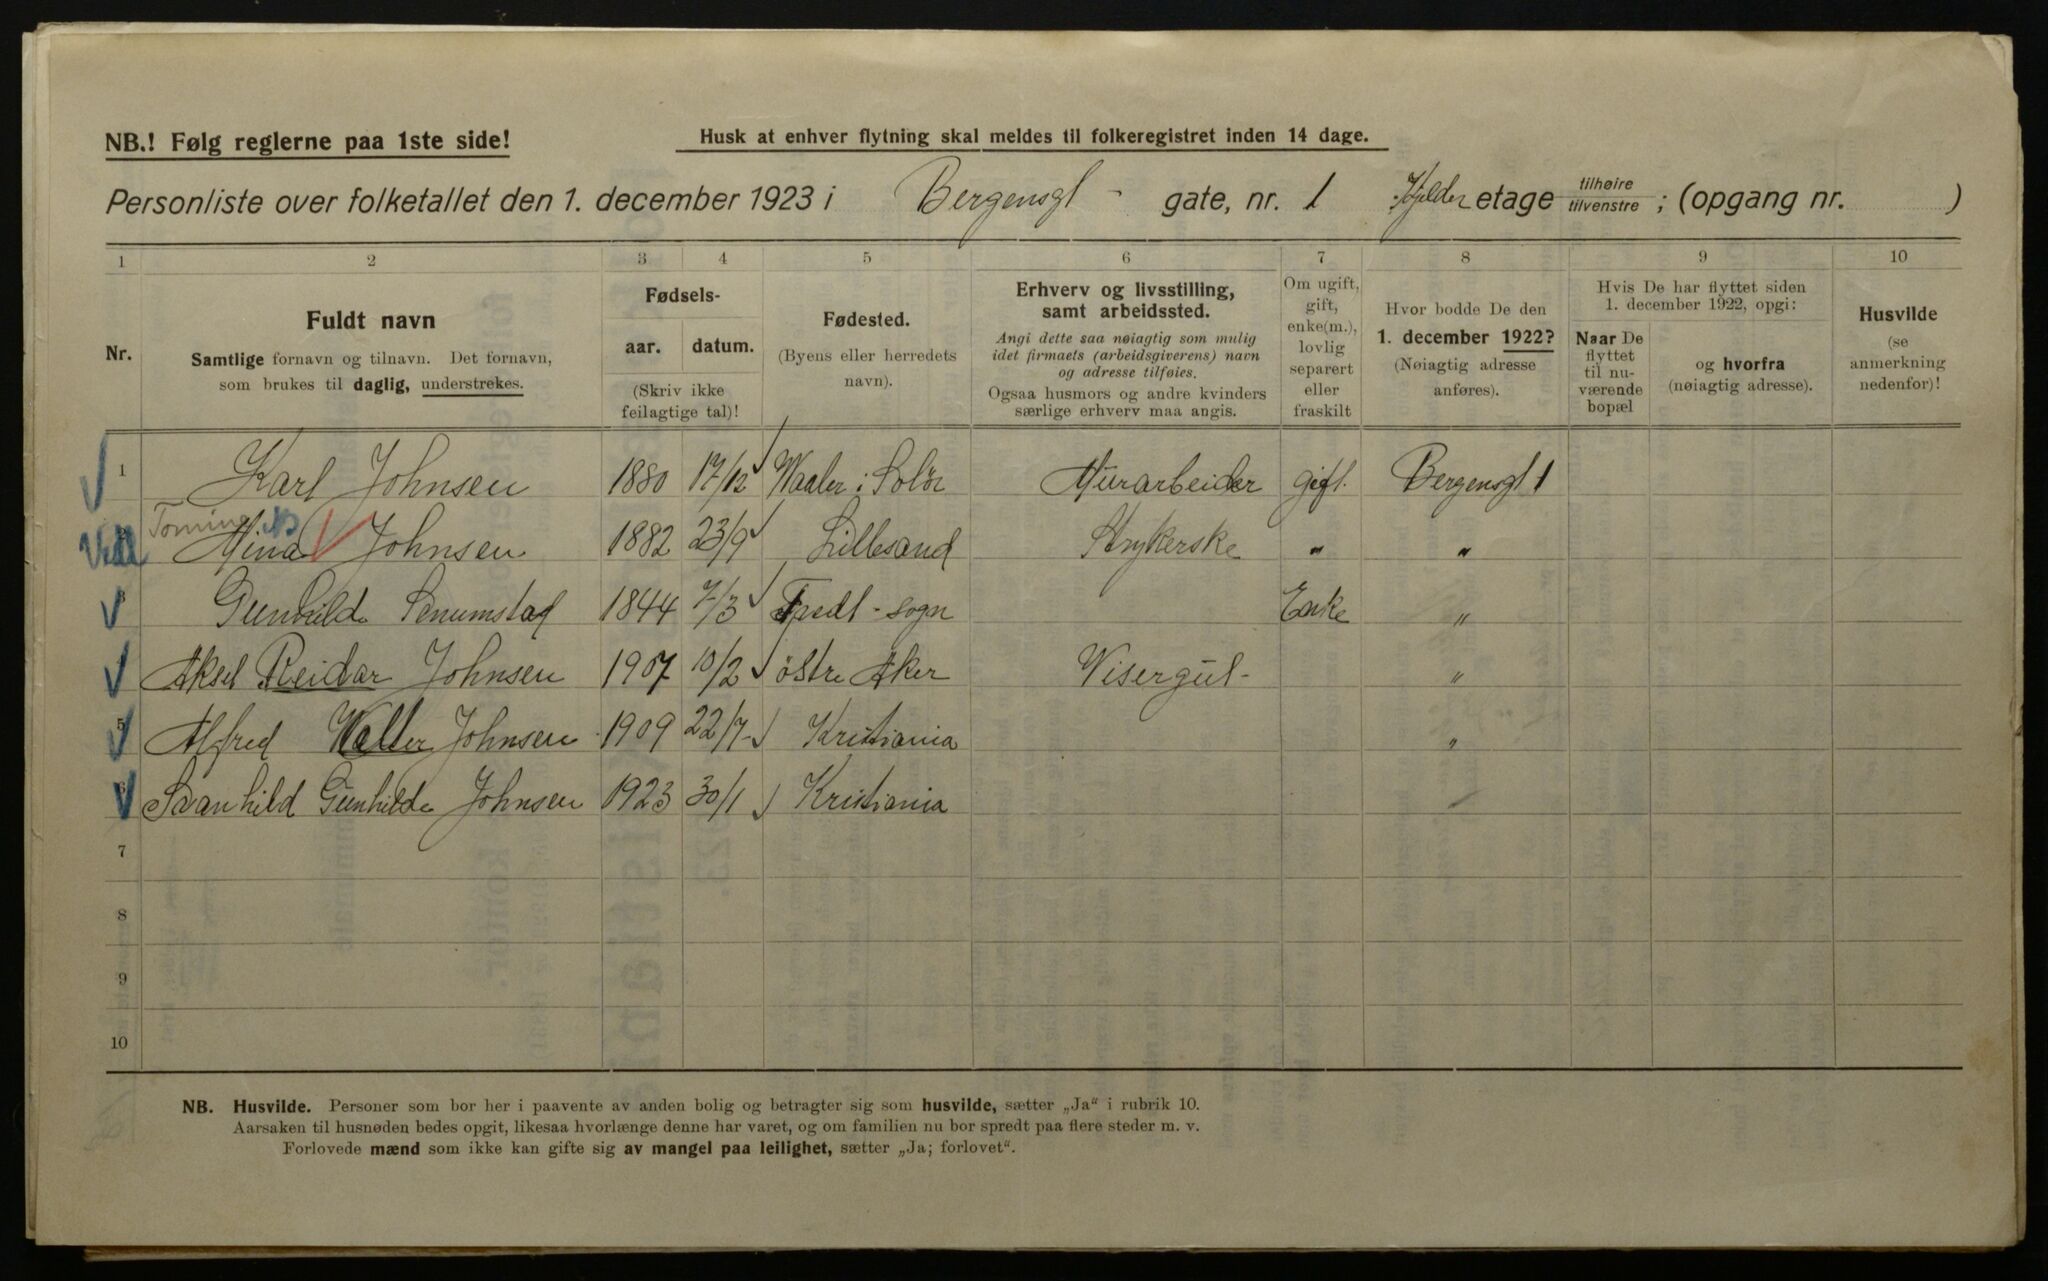 NB.! Følg reglerne paa 1ste side!
Husk at enhver flytning skal meldes til folkeregistret inden 14 dage.
Personliste over folketallet den 1. december 1923 i Bergensgt - gate, nr. 1 Kjelder etage tilhøire tilvenstre ; (opgang nr. )
1 2 3 4 5 6 7 8 9 10
Nr.
Fuldt navn
Samtlige fornavn og tilnavn. Det fornavn,
som brukes til daglig, understrekes.
Fødsels-
aar. datum.
(Skriv ikke
feilagtige tal)!
Fødested.
(Byens eller herredets
navn).
Erhverv og livsstilling,
samt arbeidssted.
Angi dette saa nøiagtig som mulig
idet firmaets (arbeidsgiverens) navn
og adresse tilføies.
Ogsaa husmors og andre kvinders
særlige erhverv maa angis.
Om ugift,
gift,
enke(m.),
lovlig
separert
eller
fraskilt
Hvor bodde De den
1. december 1922?
(Nøiagtig adresse
anføres).
Hvis De har flyttet siden
1. december 1922, opgi:
Naar De
flyttet
til nu-
værende
bopæl
og hvorfra
(nøiagtig adresse).
Husvilde
(se
anmerkning
nedenfor)!
1 Karl Johnsen 1880 17/12 Waaler i Solør Murarbeider gift. Bergensgt 1
Tomine
Mina Johnsen 1882 23/9 Lillesand Strykerske „ „
3 Gunhilde Senumstad 1844 7/3 sogn Enke „
Aksel Reidar Johnsen 1907 10/2 østre Aker Visergut - „
5 Alfred Walter Johnsen 1909 22/7 Kristiania „
6 Svanhild Gunhilde Johnsen 1923 30/1 Kristiania
7
8
9
10
NB. Husvilde. Personer som bor her i paavente av anden bolig og betragter sig som husvilde, sætter „Ja“ i rubrik 10.
Aarsaken til husnøden bedes opgit, likesaa hvorlænge denne har varet, og om familien nu bor spredt paa flere steder m. v.
Forlovede mænd som ikke kan gifte sig av mangel paa leilighet, sætter „Ja; forlovet“.